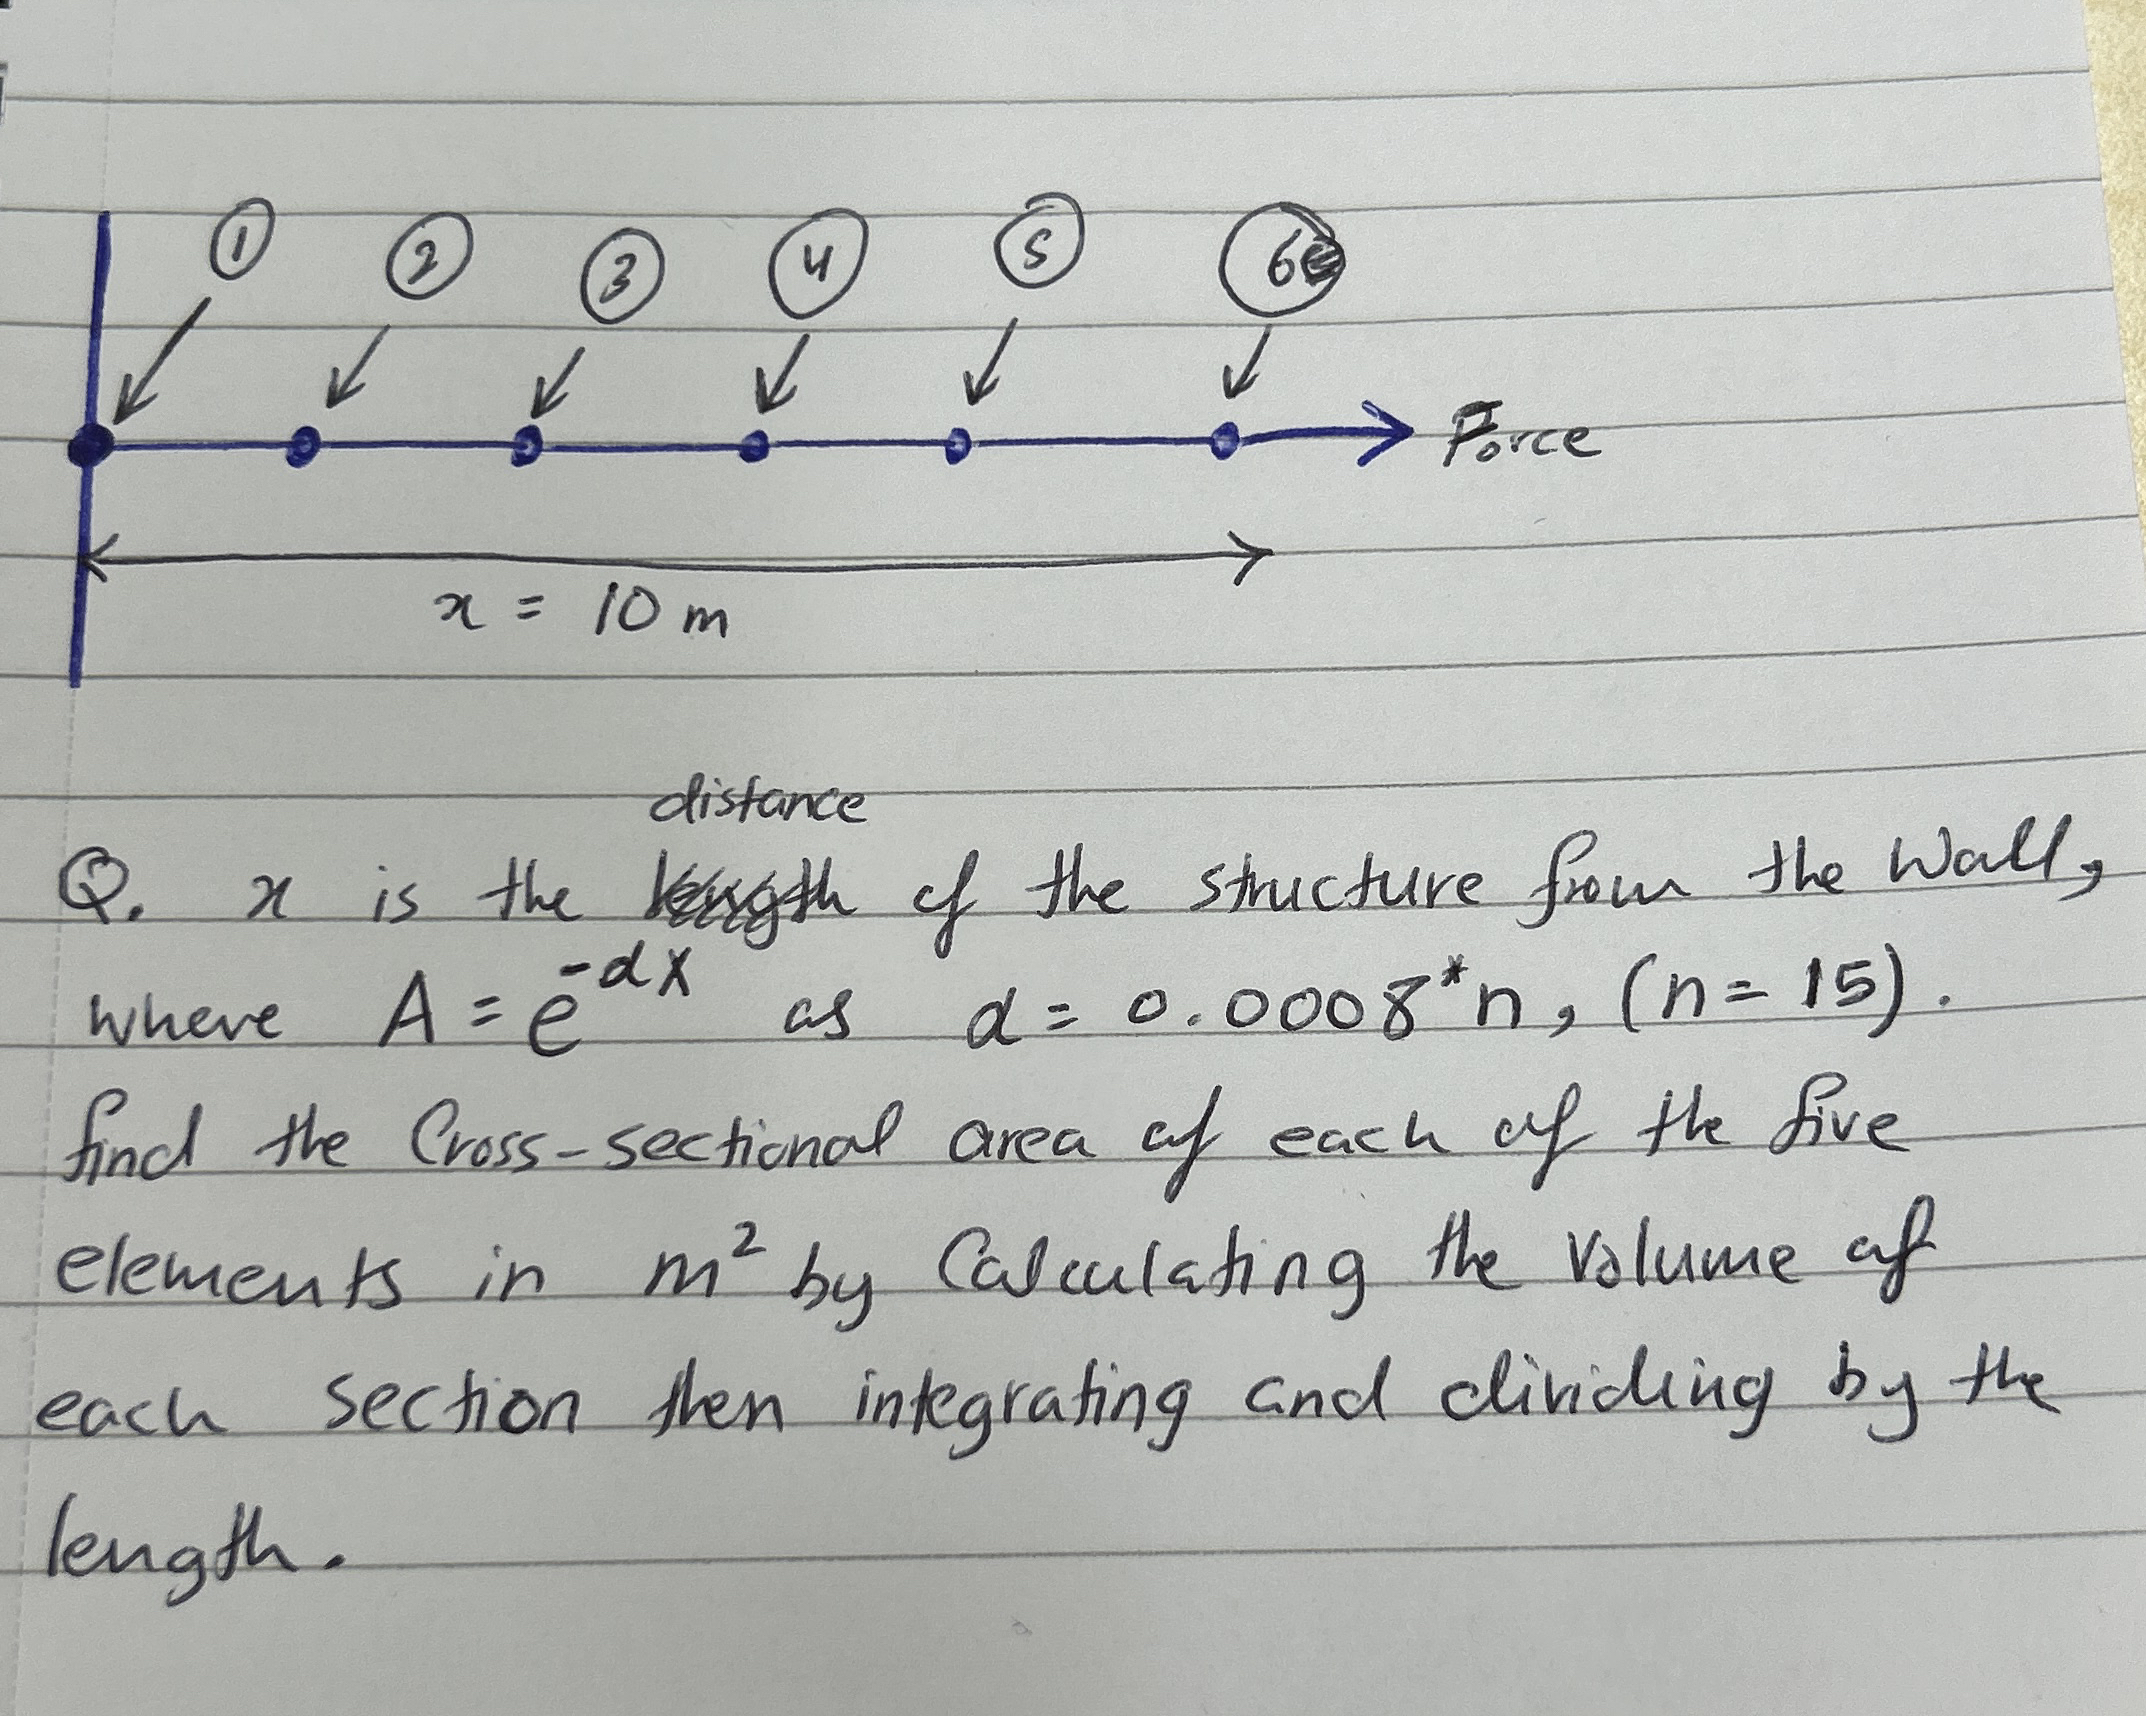 ① ② ③ ④ ⑤ ⑥
Force
x = 10 m
distance
Q. x is the length of the structure from the Wall,
where A = e^-αx as α = 0.0008*n, (n = 15).
find the Cross-sectional area of each of the five
elements in m² by Calculating the Volume of
each section then integrating and dividing by the
length.